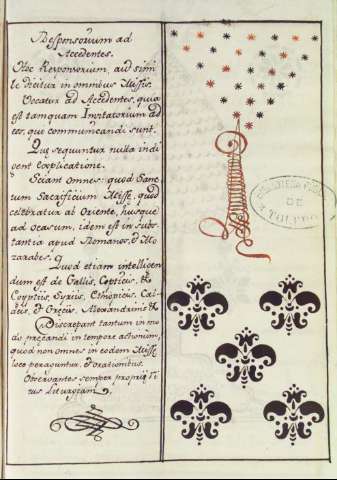 Responsorium ad
Accedentes.
Hoc Responsorium, aut simi
le dicitur in omnibus Missis.
Vocatur ad Accedentes, quia
est tamquam Invitatorium ad
eos, que communicandi sunt.
Quę sequuntur nulla indi
gent explicatione.
Sciant omnes: quod Sanc
tum Sacrificium Missę, quod
celebratur ab Oriente, husque
ad ocasum, idem est in subs
tantia apud Romanos, et Mo
zarabes.
Quod etiam intelligen
dum est de Gallis, Copticis,
Egyptiis, Syriis, Ethiopicis, Cal
deis, et Grecis, Alexandrinis
Discrepant tantum in mo
do precandi in tempore actionum,
quod non omnes in eodem Missę
loco peraguntur, et orationibus.
Observantes semper proprij Ri
tus Liturgiam.
BIBLIOTECA
DE
TOLEDO